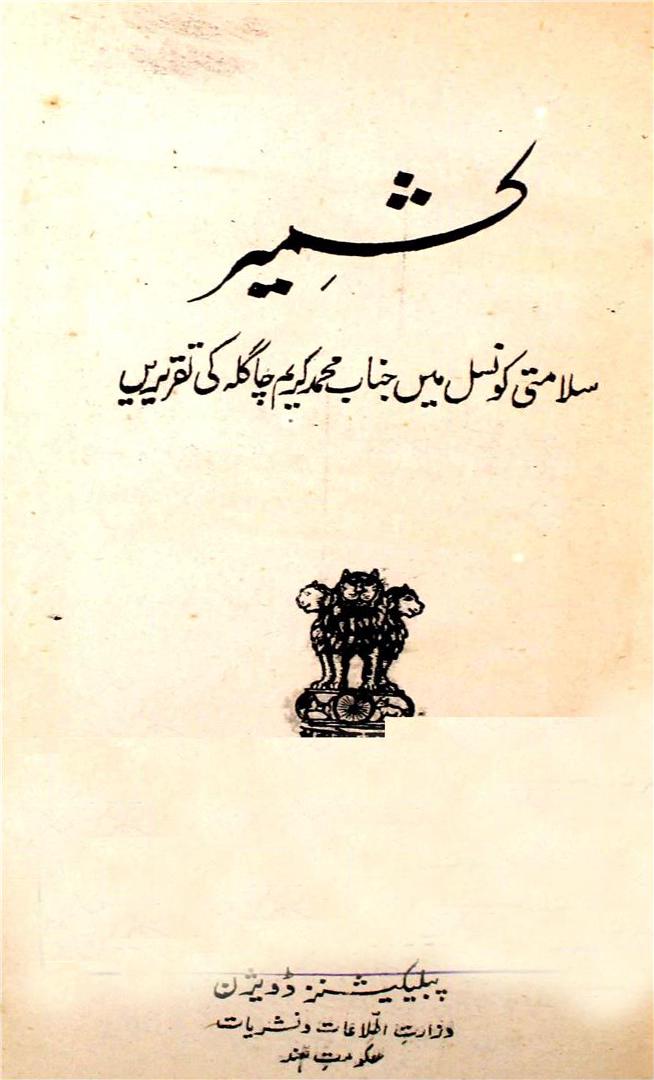 کشمیر
سلامتی کونسل میں جناب محمد کریم چاگلہ کی تقریریں
پبلیکیشنز ڈویژن
وزارتِ اطلاعات و نشریات
حکومتِ ہند